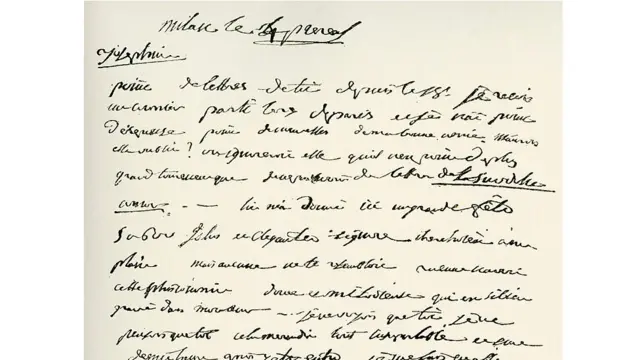 milan le 4 prereal
josephine
point de lettres de toi depuis le 28 je recois
un courrier parti de paris et je n'ai point
de reponse point de nouvelles de ma bonne amie. m'auroit
elle oublié? ou ignoreroit elle qu'il n'est point de plus
grand tourment que de ne pas recevoir de lettres de
amor. — l'on m'a donné ici un grande fête
5 ou 600 jolies et elegantes figures cherchoient à me
plaire mais aucune ne te resembloit aucune n'avoit
cette phisionomie douce et melodieuse qui est si bien
gravé dans mon cœur — je ne voyois que toi je ne
pensois que toi cela me rendit tout insuportable et une
demie heure après